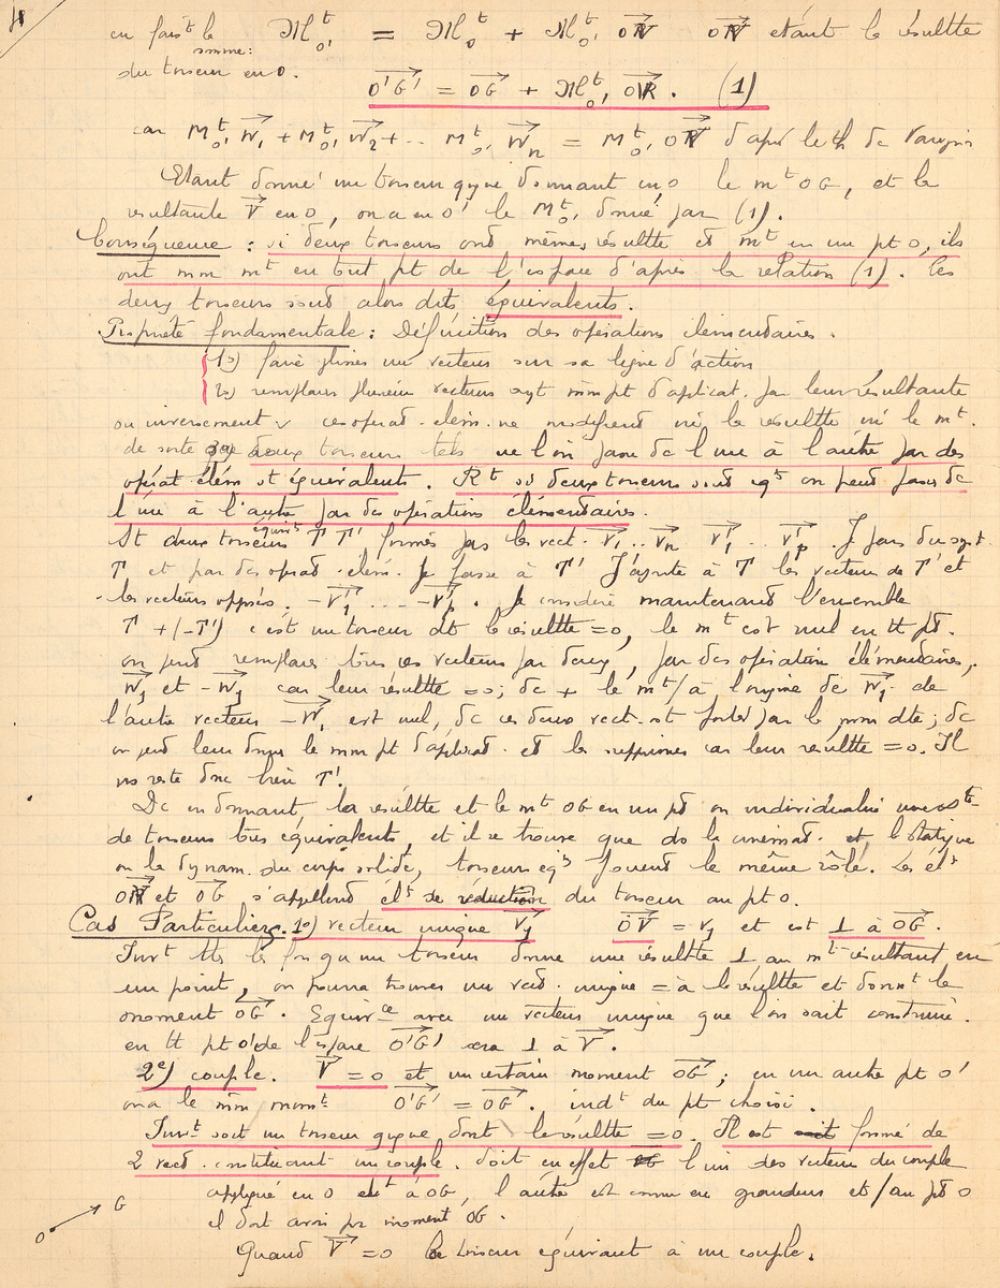 4
en fais^t la somme : M^t_o' = M^t_o + M^t_o' OV OV étant la résultte
du torseur en o.
O'G' = OG + M^t_o' OV. (1)
car M^t_o' W_1 + M^t_o' W_2 + .. M^t_o' W_n = M^t_o' OV d'après le th de Varignon
Etant donné un torseur qque donnant en o le m^t OG, et la
résultante V en o, on a en o' le M^t_o' donné par (1).
Conséquence : si deux torseurs ont mêmes résultte et m^t en un pt o, ils
ont mm m^t en tout pt de l'espace d'après la relation (1). Les
deux torseurs sont alors dits équivalents.
Propriété fondamentale : Définition des opérations élémentaires.
1o) faire glisser un vecteur sur sa ligne d'action
2o) remplacer plusieurs vecteurs ayt mm pt d'applicat. par leur résultante
ou inversement ces opérat. élém. ne modifient ni la résultte ni le m^t.
de sorte que deux torseurs tels que l'on passe de l'une à l'autre par des
opérat élém st équivalents. R^t si deux torseurs sont eq^ts on peut passer de
l'un à l'autre par des opérations élémentaires.
St deux torseurs équiv^ts T T' formés par les vect. V_1 .. V_n V'_1 .. V'_p. Je pars du syst.
T et par des opérat. élém. je passe à T' J'ajoute à T les vecteurs de T' et
les vecteurs opposés. -V'_1 .... -V'_p. Je considère maintenant l'ensemble
T + (-T') c'est un torseur dt la résultte = 0, le m^t est nul en tt pt.
on peut remplacer tous ces vecteurs par deux, par des opération élémentaires,
W_1 et -W_1 car leur résultte = 0; dc + le m^t / à l'origine de W_1 de
l'autre vecteur -W_1 est nul, dc ces deux vect. st portés par la mm dte; dc
on peut leur donner le mm pt d'applicat. et les supprimer car leur résultte = 0. Il
ns reste donc bien T'.
Dc en donnant la résultte et le m^t OG en un pt on individualise
de torseurs tous équivalents, et il se trouve que ds la cinémat. et, la statique
ou la dynam. du corps solide, torseurs eq^ts jouent le même rôle. Les él^ts
OV et OG s'appellent él^ts de réduction du torseur au pt o.
Cas Particuliers. 1o) vecteur unique V_1 OV = V_1 et est ⊥ à OG.
Invt ttes les fois qu'un torseur donne une résultte ⊥ au m^t résultant en
un point, on pourra trouver un vect. unique = à la résultte et donn^t le
moment OG. Equiv^ce avec un vecteur unique que l'on sait construire.
en tt pt o' de l'espace O'G' sera ⊥ à V.
2e) couple. V = 0 et un certain moment OG; en un autre pt o'
on a le mm mom^t O'G' = OG. ind^t du pt choisi.
Invt soit un torseur qque dont la résultte = 0. Il est formé de
2 vect. constituant un couple. Soit en effet l'un des vecteurs du couple
appliqué en o et à OG, l'autre est connu en grandeur et / au pt o
il doit avoir pr moment OG.
O G
Quand V = 0 le torseur équivaut à un couple.